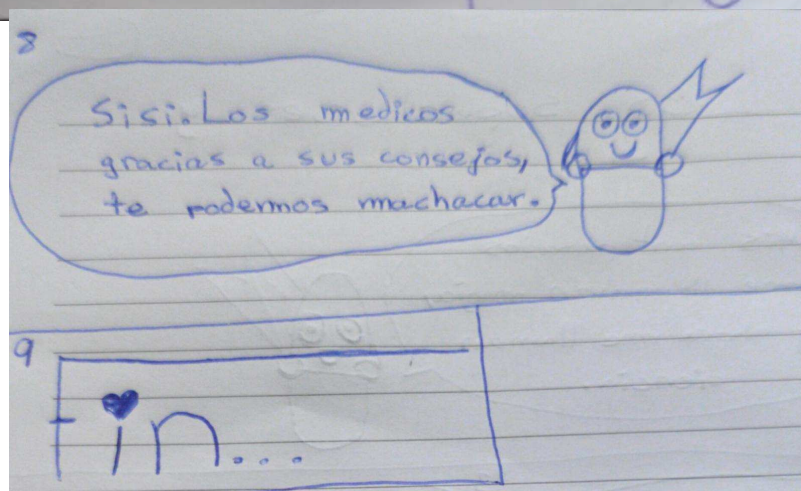 8
Sisi. Los medicos
gracias a sus consejos,
te podemos machacar.
9
Fin...